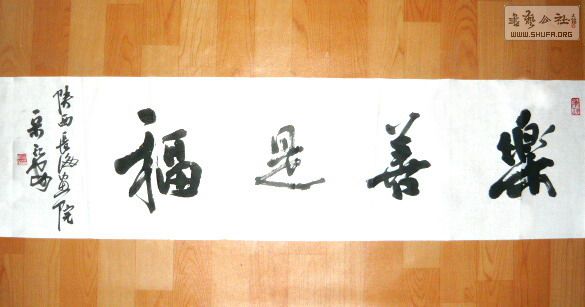 樂善是福
陕西長海画院
書艺公社
WWW.SHUFA.ORG